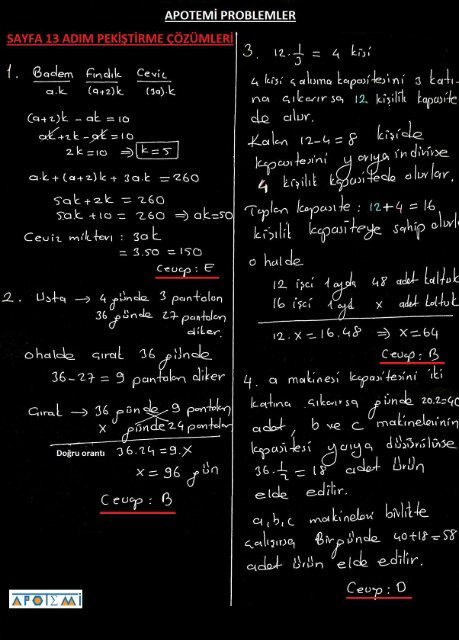 APOTEMİ PROBLEMLER
SAYFA 13 ADIM PEKİŞTİRME ÇÖZÜMLERİ
1. Badem Fındık Ceviz
a.k (a+2)k (3a).k
(a+2)k - ak = 10
ak + 2k - ak = 10
2k = 10 ⇒ k = 5
a.k + (a+2)k + 3a.k = 260
5ak + 2k = 260
5ak + 10 = 260 ⇒ ak = 50
Ceviz miktarı : 3ak
= 3.50 = 150
Cevap : E
2. Usta → 4 günde 3 pantolon
36 günde 27 pantolon
diker.
ohalde çırak 36 günde
36 - 27 = 9 pantolon diker
Çırak → 36 günde 9 pantolon
x günde 24 pantolon
Doğru orantı 36.24 = 9.x
x = 96 gün
Cevap : B
APOTEMİ
3. 12.1/3 = 4 kişi
4 kişi çalışma kapasitesini 3 katı-
na çıkarırsa 12 kişilik kapasite
de olur.
Kalan 12-4 = 8 kişide
kapasitesini yarıya indirirse
4 kişilik kapasitede olurlar.
Toplam kapasite : 12 + 4 = 16
kişilik kapasiteye sahip olurlar
o halde
12 işçi 1 ayda 48 adet koltuk
16 işçi 1 ayda x adet koltuk
12.x = 16.48 ⇒ x = 64
Cevap : B
4. a makinesi kapasitesini iki
katına çıkarırsa günde 20.2=40
adet, b ve c makinelerinin
kapasitesi yarıya düşürülürse
36.1/2 = 18 adet ürün
elde edilir.
a,b,c makineleri birlikte
çalışırsa Bir günde 40+18 = 58
adet ürün elde edilir.
Cevap : D